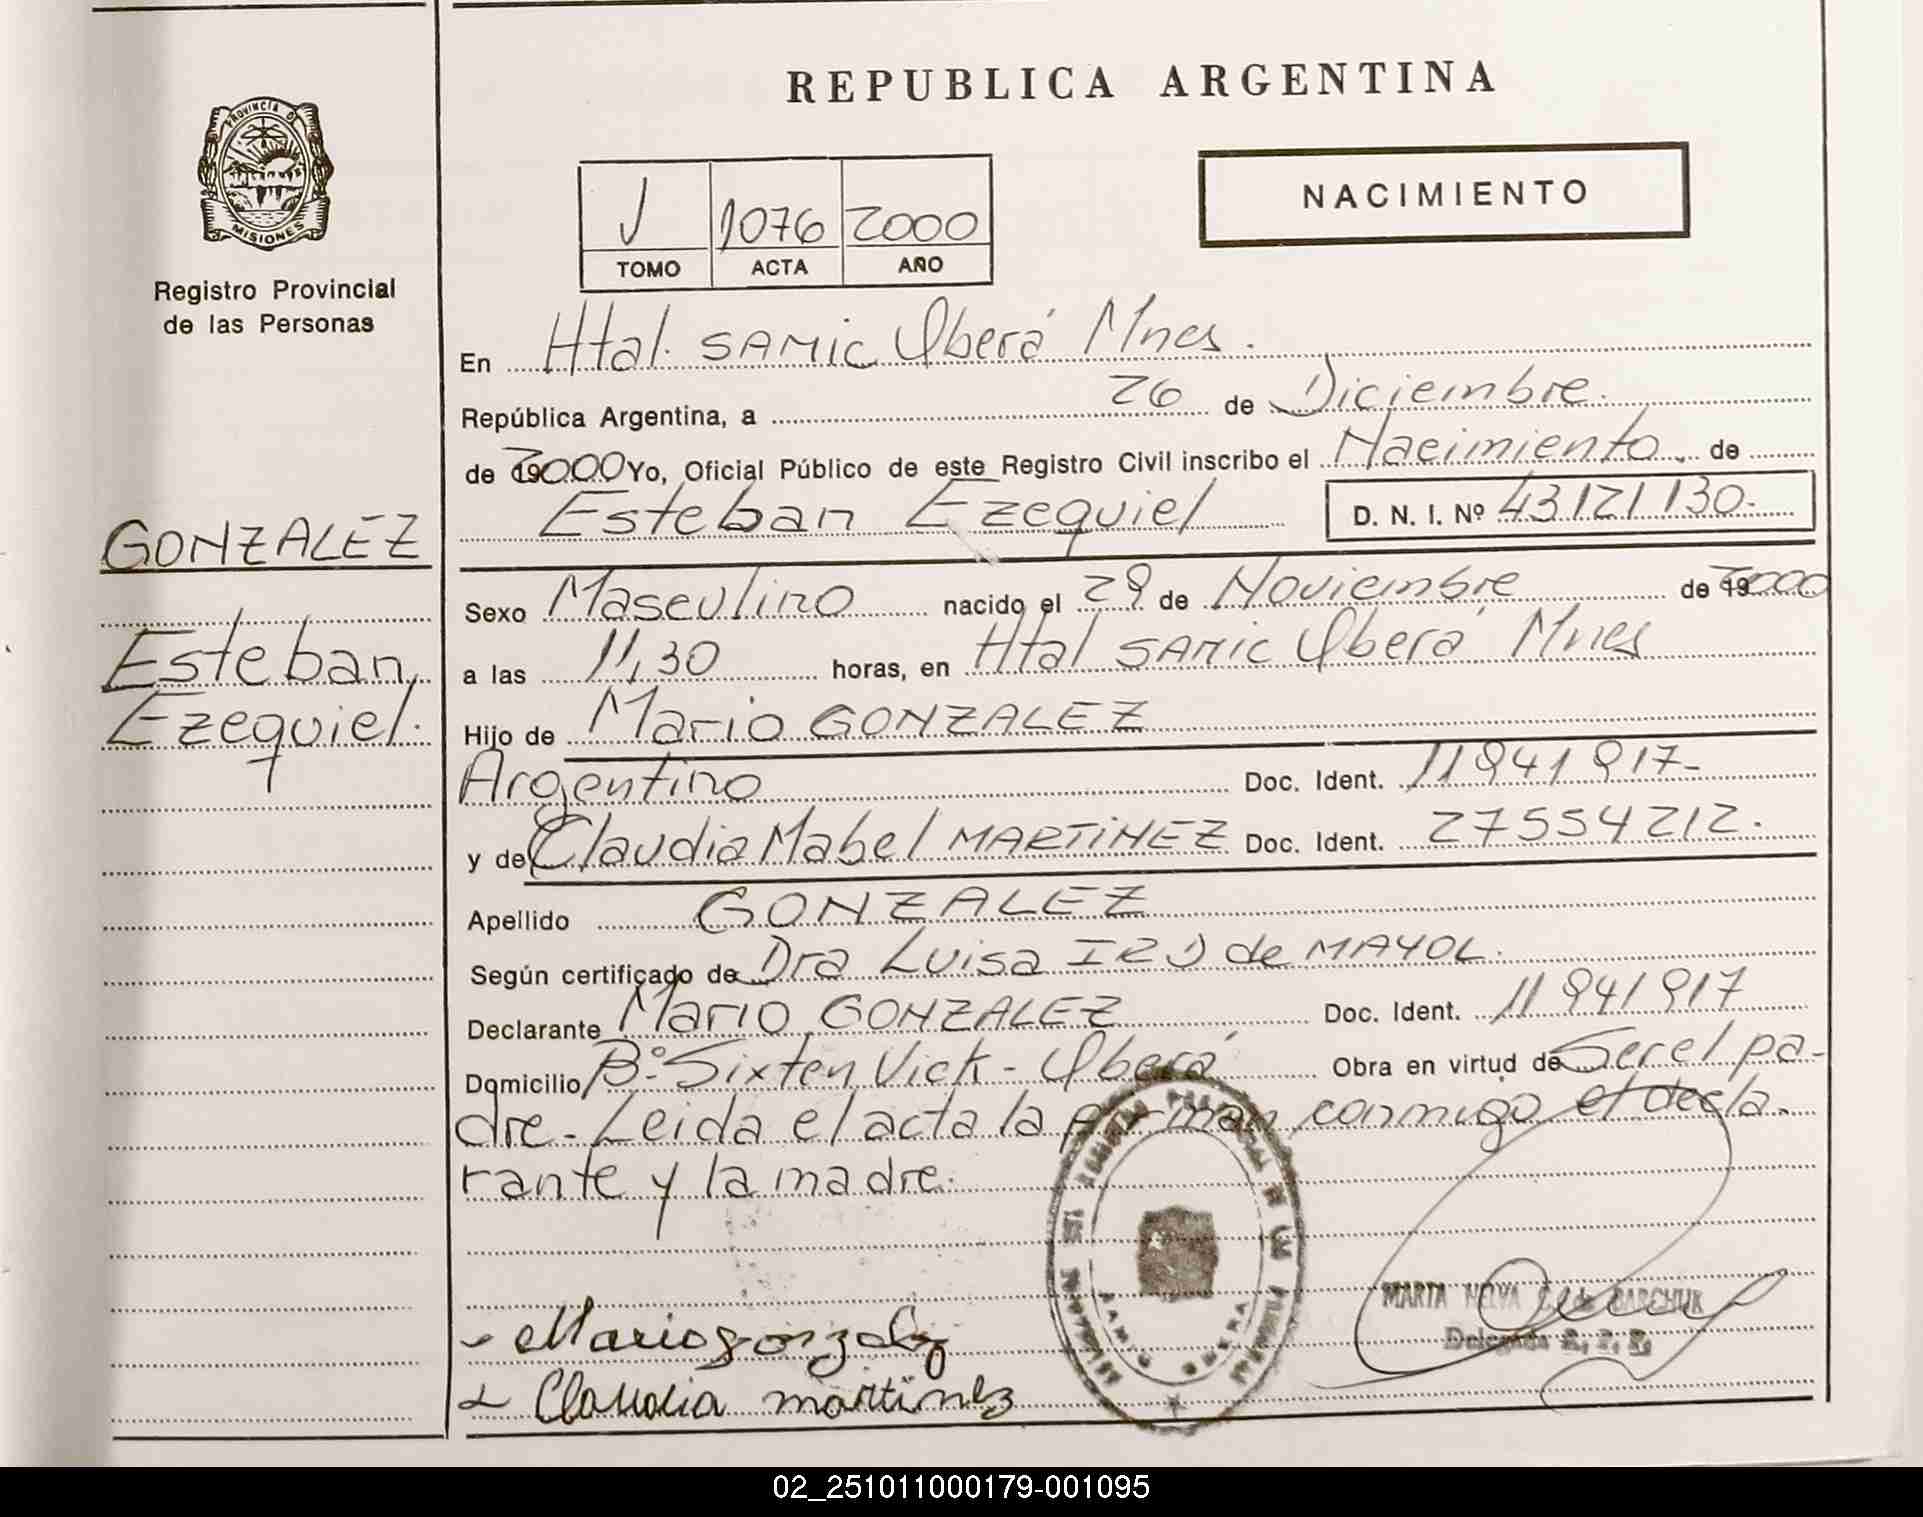 REPUBLICA ARGENTINA
PROVINCIA D
MISIONES
Registro Provincial
de las Personas
V 1076 2000
TOMO ACTA AÑO
NACIMIENTO
En Htal. SAMIC Oberá Mnes.
República Argentina, a 26 de Diciembre.
de 2000 Yo, Oficial Público de este Registro Civil inscribo el Nacimiento de
Esteban Ezequiel D. N. I. Nº 43121130.-
GONZALEZ
Esteban
Ezequiel.
Sexo Masculino nacido el 29 de Noviembre de 2000
a las 11,30 horas, en Htal SAMIC Oberá Mnes
Hijo de Mario GONZALEZ
Argentino Doc. Ident. 11941917-
y de Claudia Mabel MARTINEZ Doc. Ident. 27554212.
Apellido GONZALEZ
Según certificado de Dra Luisa de MAYOL.
Declarante Mario GONZALEZ Doc. Ident. 11941917
Domicilio Bº Sixten Vick - Oberá Obra en virtud de Ser el pa-
dre - Leida el acta la firman conmigo el decla-
rante y la madre.
Mario gonzalez
Claudia martinez
MARTA NELVA
Delegada R. P. P.
02_251011000179-001095